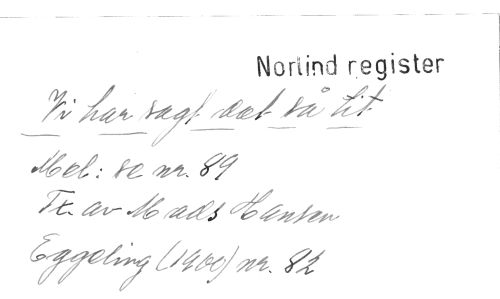 Norlind register
Vi har sagt det så tit
Mel: se nr. 89
Tx. av Mads Hansen
Eggeling (1900) nr. 82